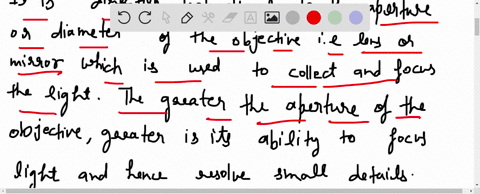 aperture
or diameter of the objective i.e lens or
mirror which is used to collect and focus
the light. The greater the aperture of the
objective, greater is its ability to focus
light and hence resolve small details.